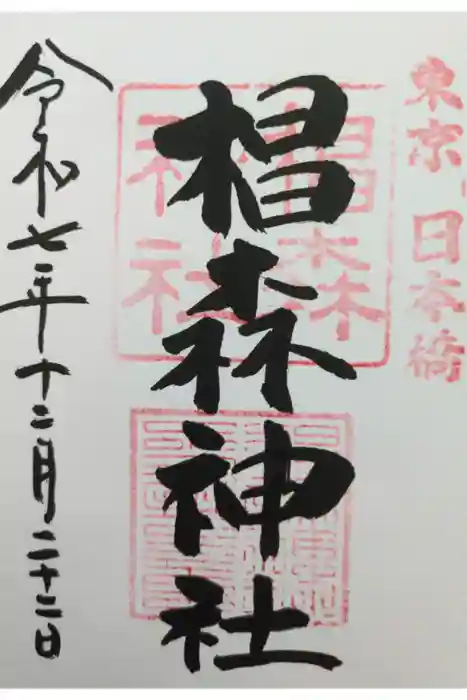 東京 日本橋
椙森神社
椙森神社
令和七年十二月二十二日